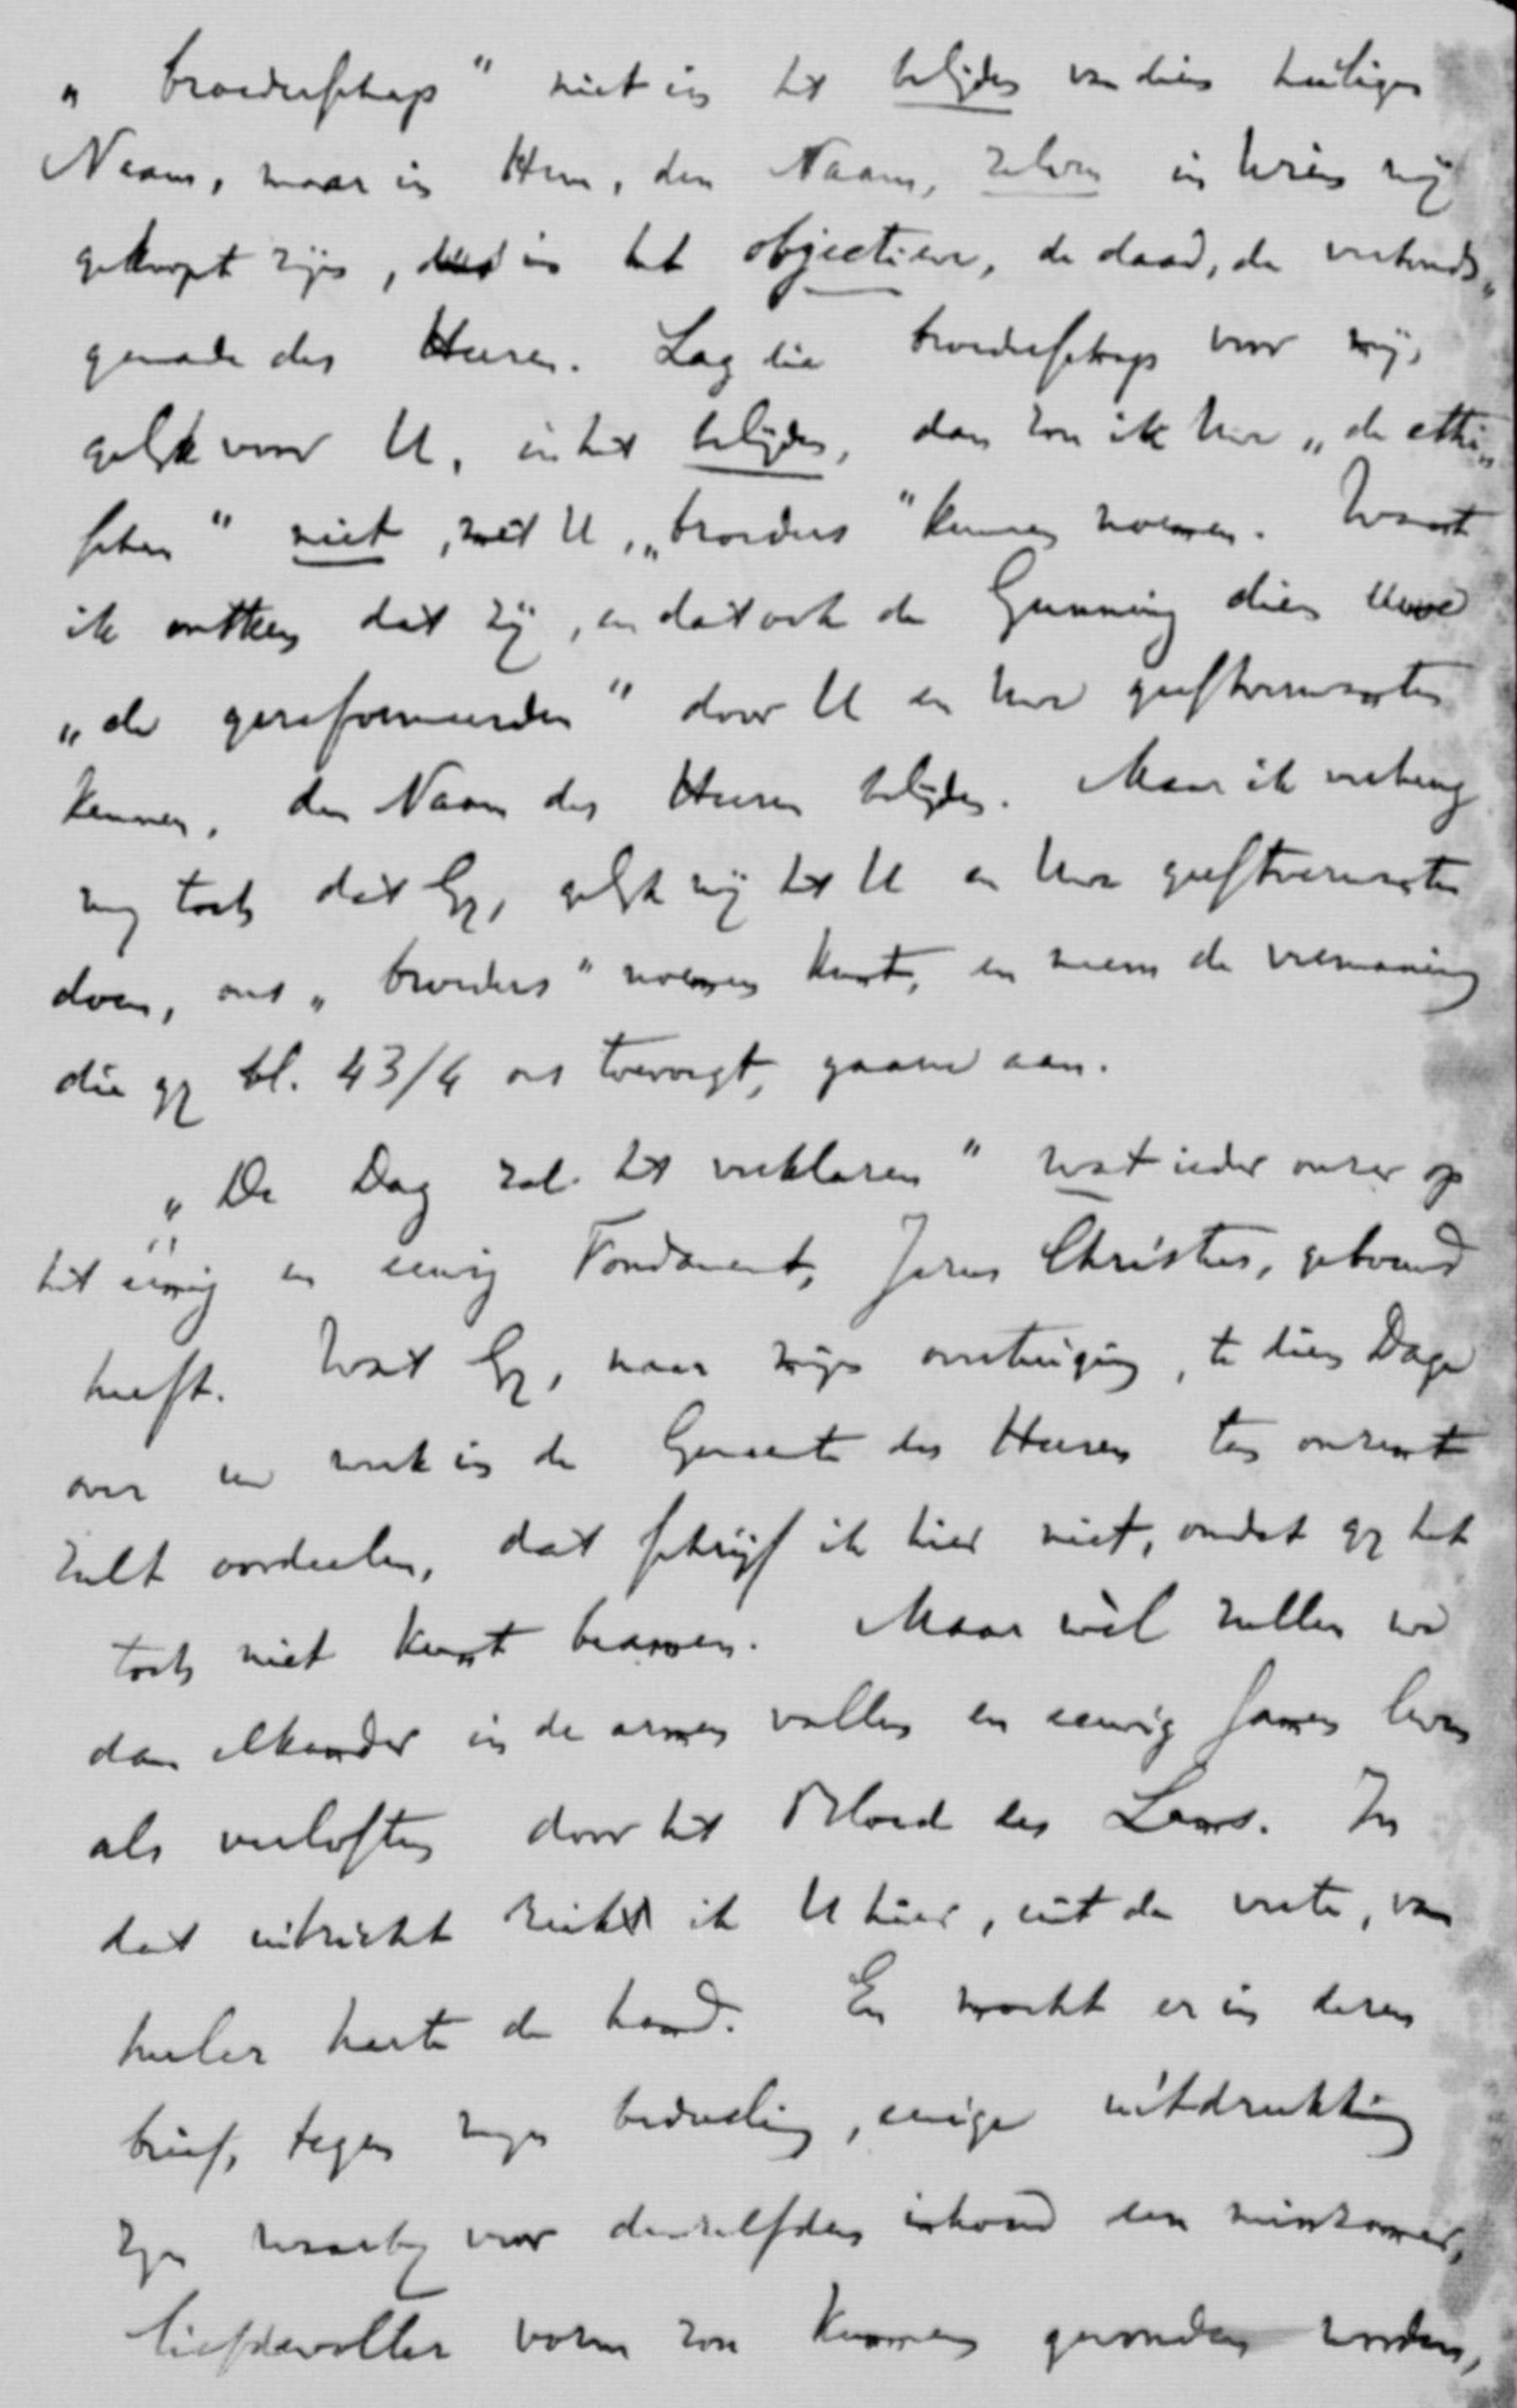 „broederschap" niet in het belijden van dien heiligen
Naam, maar in Hem, den Naam, zelven in Wien wij
gedoopt zijn, dus in het objectieve, de daad, de verbonds„
genade des Heeren. Lag die broederschap voor mij,
gelijk voor U, in het belijden, dan zou ik hier „de ethi„
schen" niet, met U, „broeders" kunnen noemen. Want
ik ontken dat zij, en dat ook de Gunning dien Uwe
„de gereformeerden" door U en Uwe geestverwanten
kennen, den Naam des Heeren belijden. Maar ik verheug
mij toch dat Gij, gelijk wij het U en Uwe geestverwanten
doen, ons „broeders" noemen kunt, en neem de vermaning
die gij bl. 43/4 ons toevoegt, gaarne aan.
„De Dag zal het verklaren" wat ieder onzer op
het eenig en eeuwig Fondament, Jezus Christus, gebouwd
heeft. Wat Gij, naar mijn overtuiging, te dien Dage
over uw werk in de Gemeente des Heeren ten onzent
zult oordeelen, dat schrijf ik hier niet, omdat gij het
toch niet kunt beamen. Maar wèl zullen we
dan elkander in de armen vallen en eeuwig samen leven
als verlosten door het Bloed des Lams. In
dat uitzicht reikt ik U hier, uit de verte, van
heeler harte de hand. En mocht er in dezen
brief, tegen mijn bedoeling, eenige uitdrukking
zijn waarbij voor denzelfden inhoud een minzamer,
liefdevoller vorm zou kunnen gevonden worden,